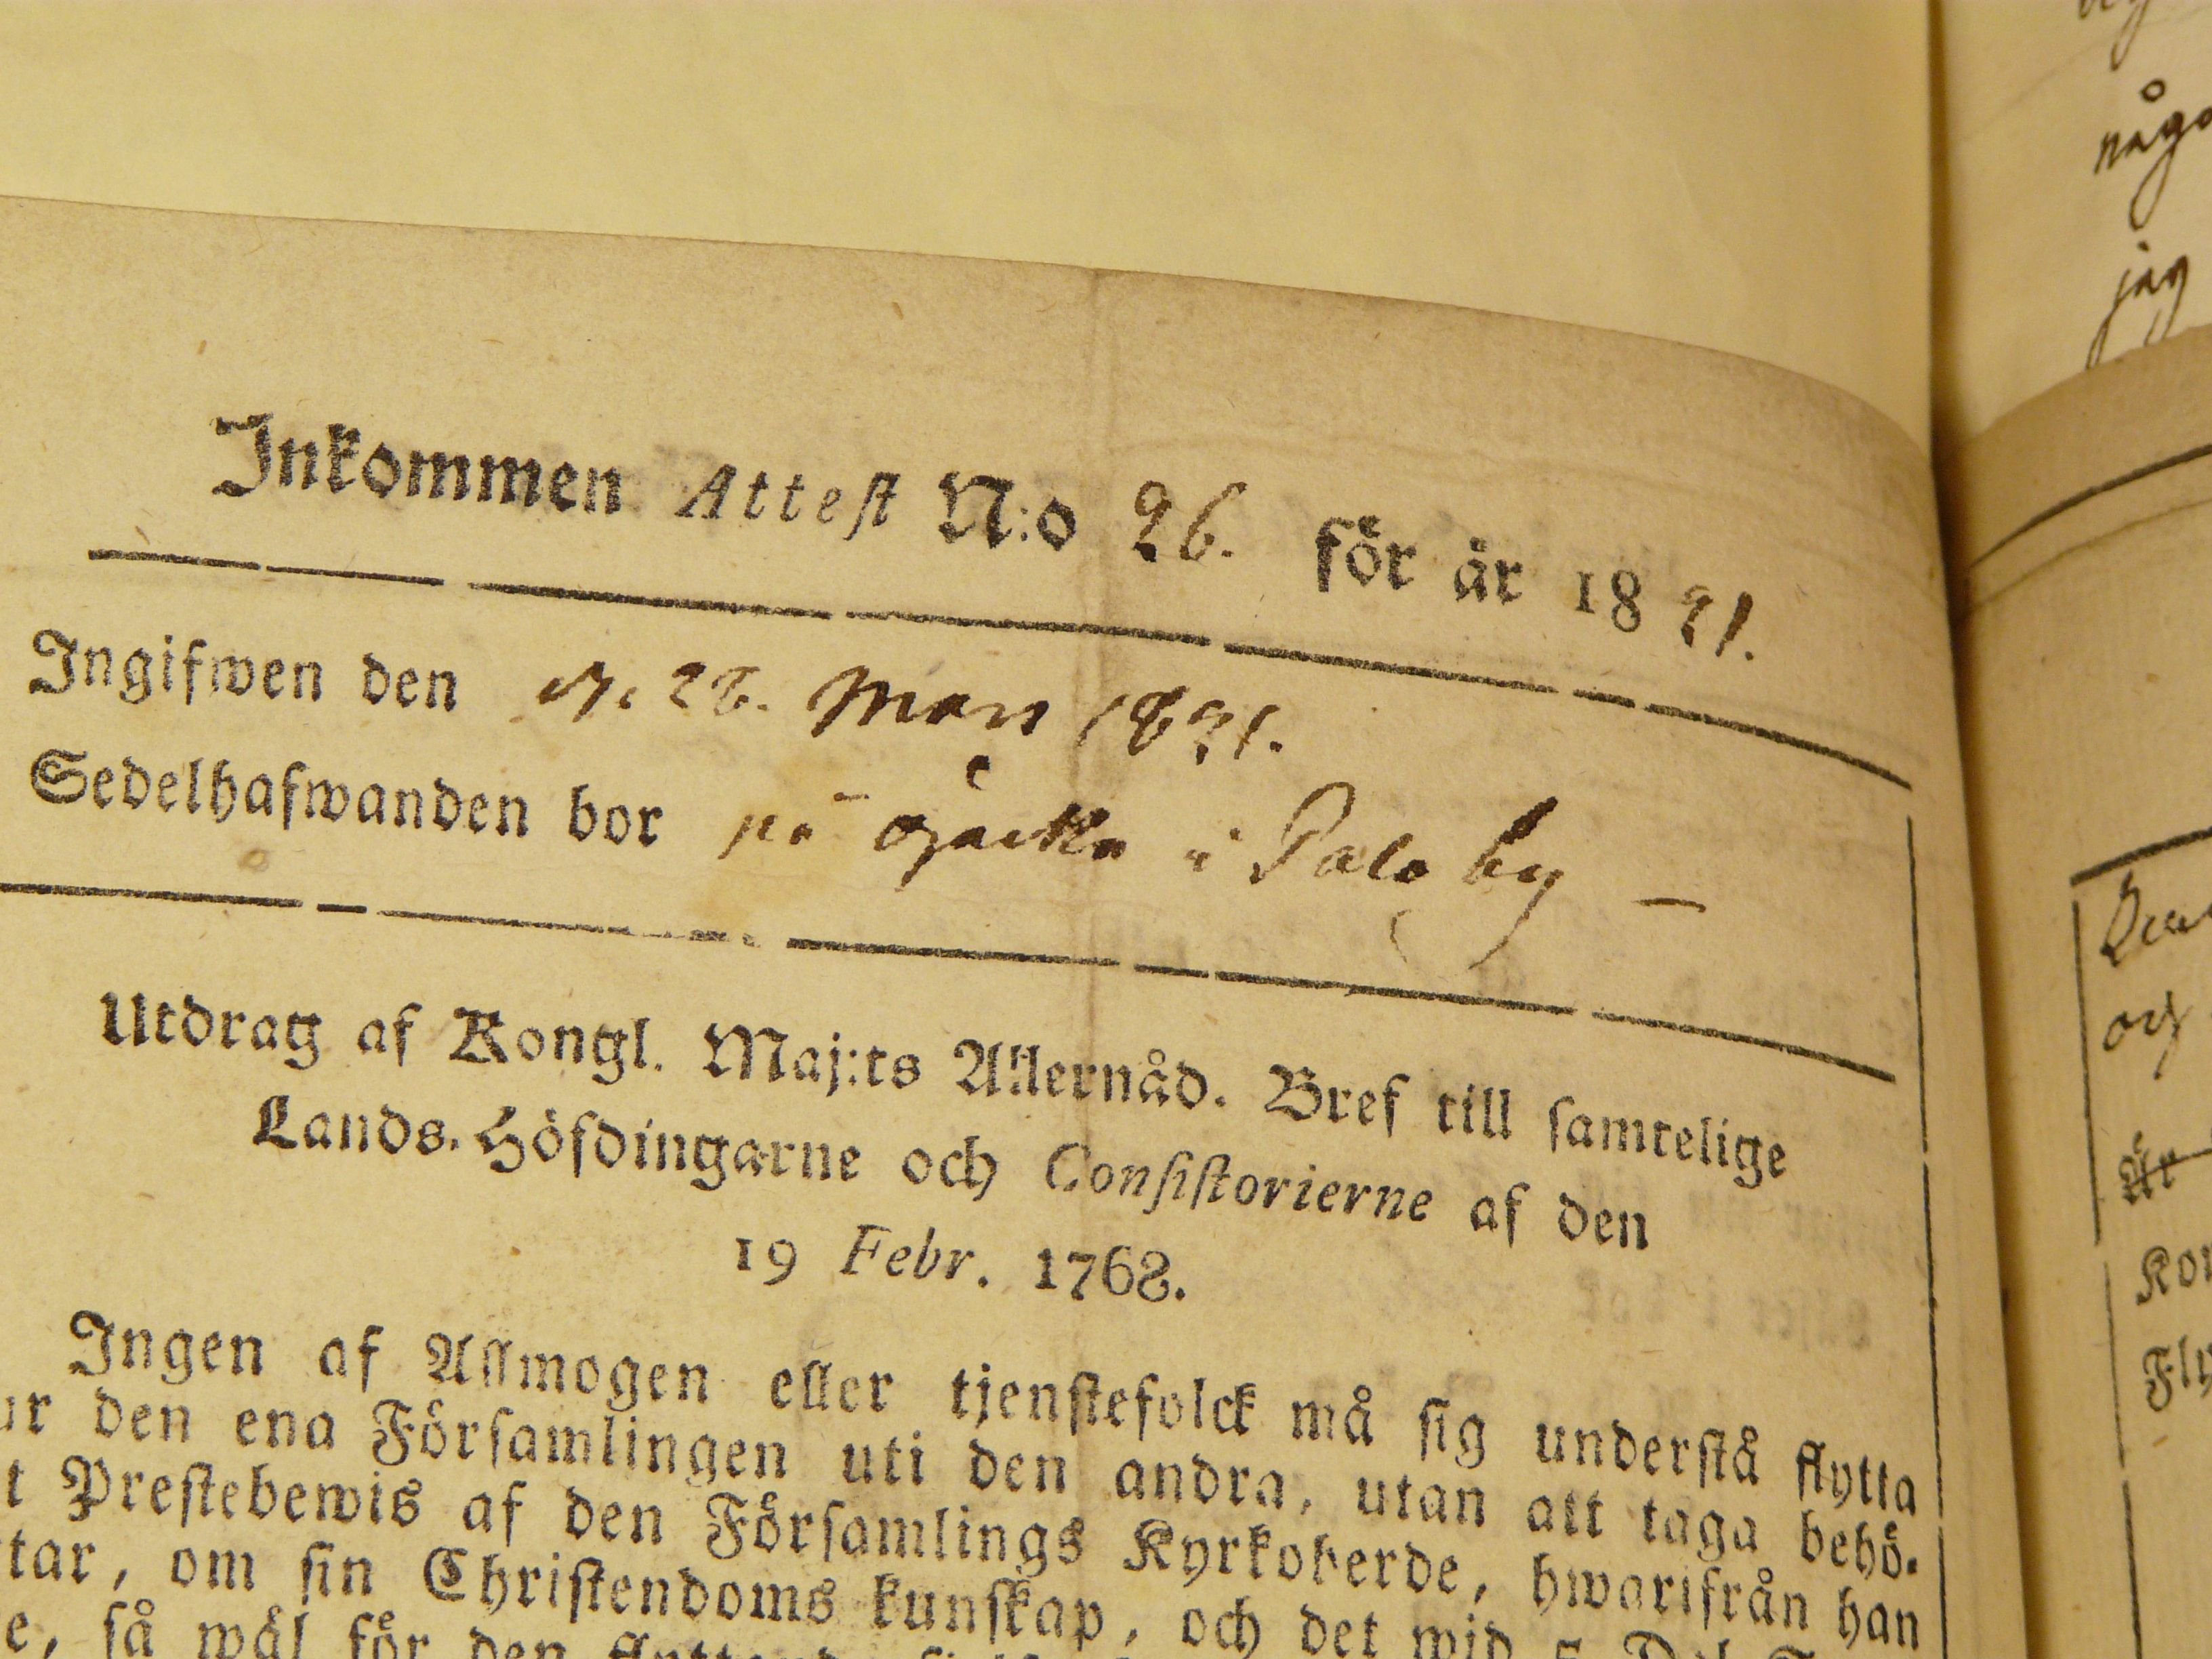 Inkommen Attest N:o 26. för år 1821.
Ingifwen den 26. Mars 1821.
Sedelhafwanden bor på i Palo by —
Utdrag af Kongl. Maj:ts Allernåd. Bref till samtelige
Lands-Höfdingarne och Consistorierne af den
19 Febr. 1768.
Ingen af Allmogen eller tjenstefolck må sig understå flytta
ur den ena Församlingen uti den andra, utan att taga behö-
t Prestebewis af den Församlings Kyrkoherde, hwarifrån han
tar, om sin Christendoms kunskap, och det wid 5 Dal.
e, så wäl för den
någo
jag
och
År
Kon
Fly